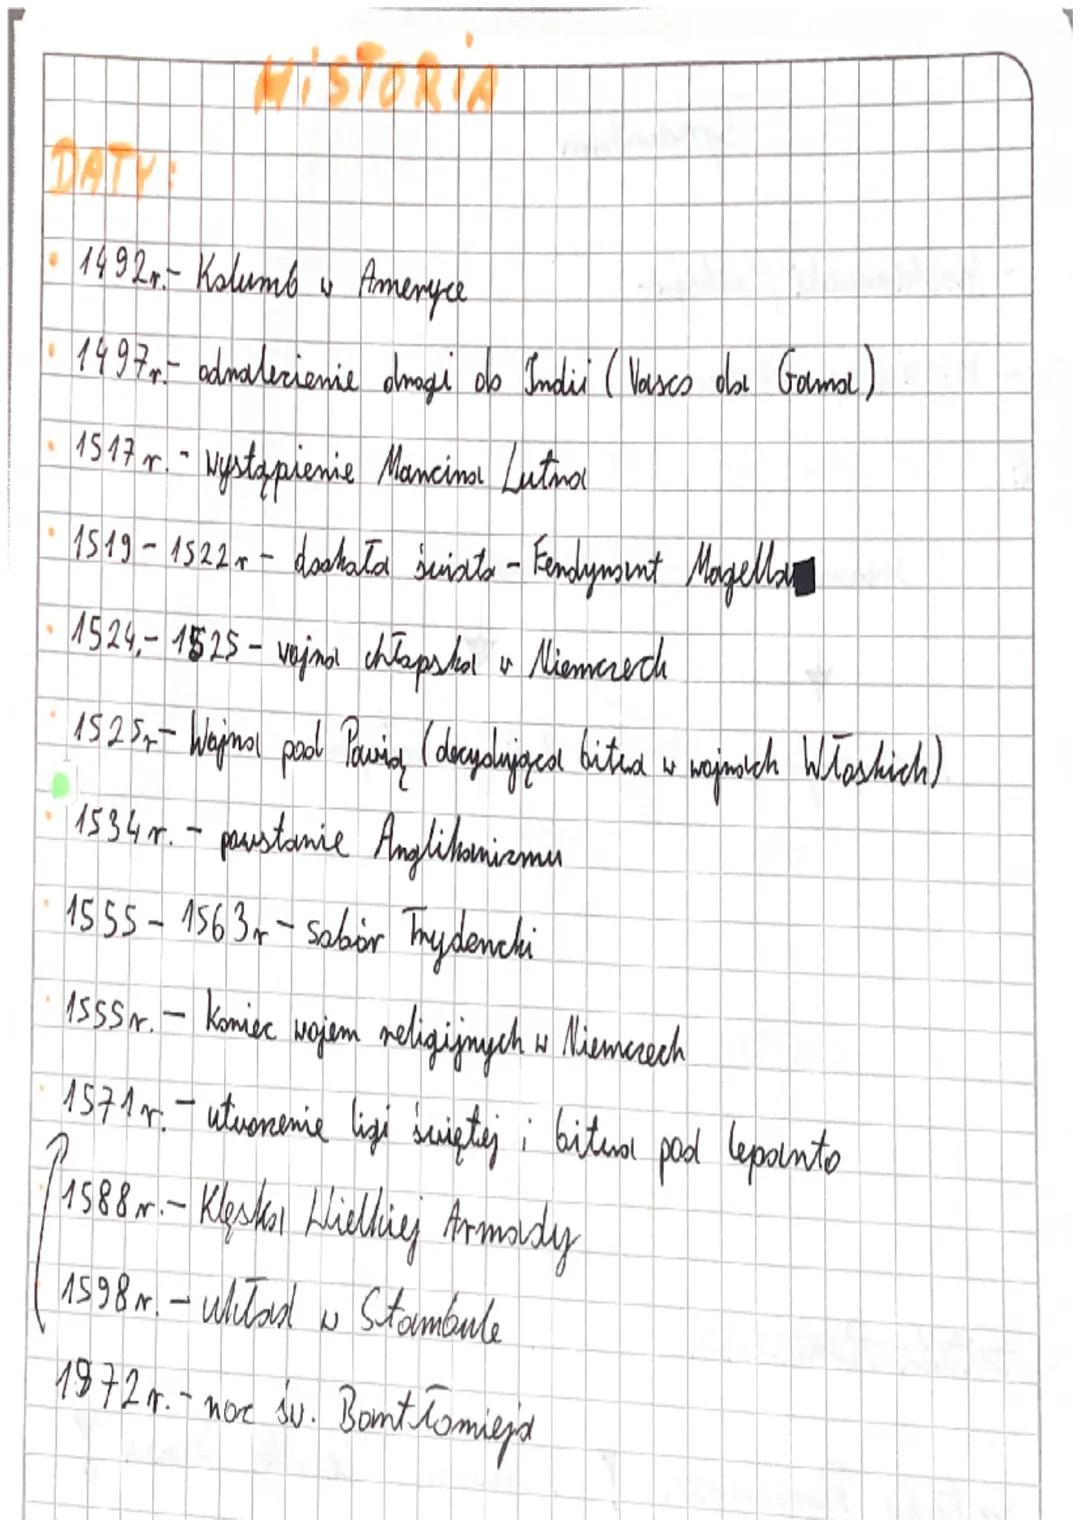 HiSTORiA
DATY:
• 1492r.- Kolumb w Ameryce
• 1497r.- odnalezienie drogi do Indii (Vasco da Gama)
• 1517 r. - wystąpienie Marcina Lutra
• 1519 - 1522r - dookoła świata - Ferdynant Magellan
• 1524,- 1525 - wojna chłapska w Niemczech
• 1525r- Wojna pod Pawią (decydująca bitwa w wojnach Włoskich)
• 1534 r. - powstanie Anglikanizmu
• 1555 - 1563r - sobór Trydencki
• 1555r. - Koniec wojem religijnych w Niemczech
• 1571r. - utworzenie ligi świętej i bitwa pod lepanto
1588r. - Klęska Wielkiej Armady
1598r. - układ w Stambule
1972r. - noc św. Bartłomieja